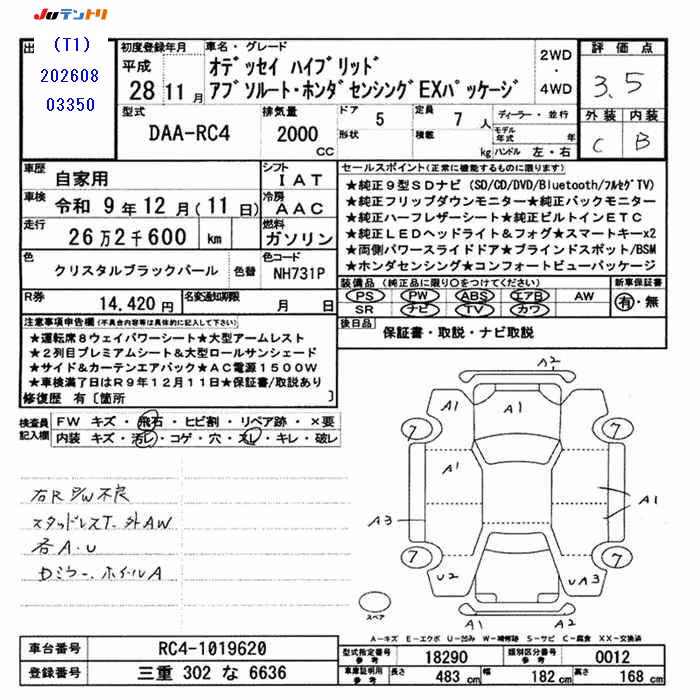 JUテントリ
出
(T1)
202608
03350
初度登録年月
平成
28 11 月
車名・グレード
オデッセイ ハイブリッド
アブソルート・ホンダセンシングEXパッケージ
2WD
・
4WD
評価点
3.5
外装 内装
C B
型式
DAA-RC4
排気量
2000
CC
ドア
5
形状
定員
7 人
積載
kg
ディーラー・並行
モデル年式 年
ハンドル 左・右
車歴
自家用
車検
令和 9年12月(11日)
走行
26万2千600 km
シフト
IAT
冷房
AAC
燃料
ガソリン
色
クリスタルブラックパール
色替
色コード
NH731P
R券
14,420円
名変通知期限
月 日
セールスポイント(正常に機能するものに限ります)
★純正9型SDナビ (SD/CD/DVD/Bluetooth/フルセグTV)
★純正フリップダウンモニター★純正バックモニター
★純正ハーフレザーシート★純正ビルトインETC
★純正LEDヘッドライト&フォグ★スマートキーx2
★両側パワースライドドア★ブラインドスポット/BSM
★ホンダセンシング★コンフォートビューパッケージ
装備品(純正品に限り○をつけてください)
PS PW ABS エアB AW
SR ナビ TV カワ
新車保証書
有・無
後日品
保証書・取説・ナビ取説
注意事項申告欄(不具合内容等は具体的に記入して下さい)
★運転席8ウェイパワーシート★大型アームレスト
★2列目プレミアムシート&大型ロールサンシェード
★サイド&カーテンエアバック★AC電源1500W
★車検満了日はR9年12月11日★保証書/取説あり
修復歴 有〔箇所 〕
検査員記入欄
FW キズ・飛石・ヒビ割・リペア跡・×要
内装 キズ・汚レ・コゲ・穴・スレ・キレ・破レ
右R P/W不良
スタッドレスT. 外AW
各A.U
Dミラー. ホイールA
A2
A1
A1
7
7
A1
A3
A1
7
7
U2
UA3
A1
A2
スペア
A-キズ E-エクボ U-凹み W-補修跡 S-サビ C-腐食 XX-交換済
車台番号
RC4-1019620
登録番号
三重 302 な 6636
型式指定番号
参考
18290
類別区分番号
参考
0012
車庫証明用
参考
長さ
483 cm
幅
182 cm
高さ
168 cm